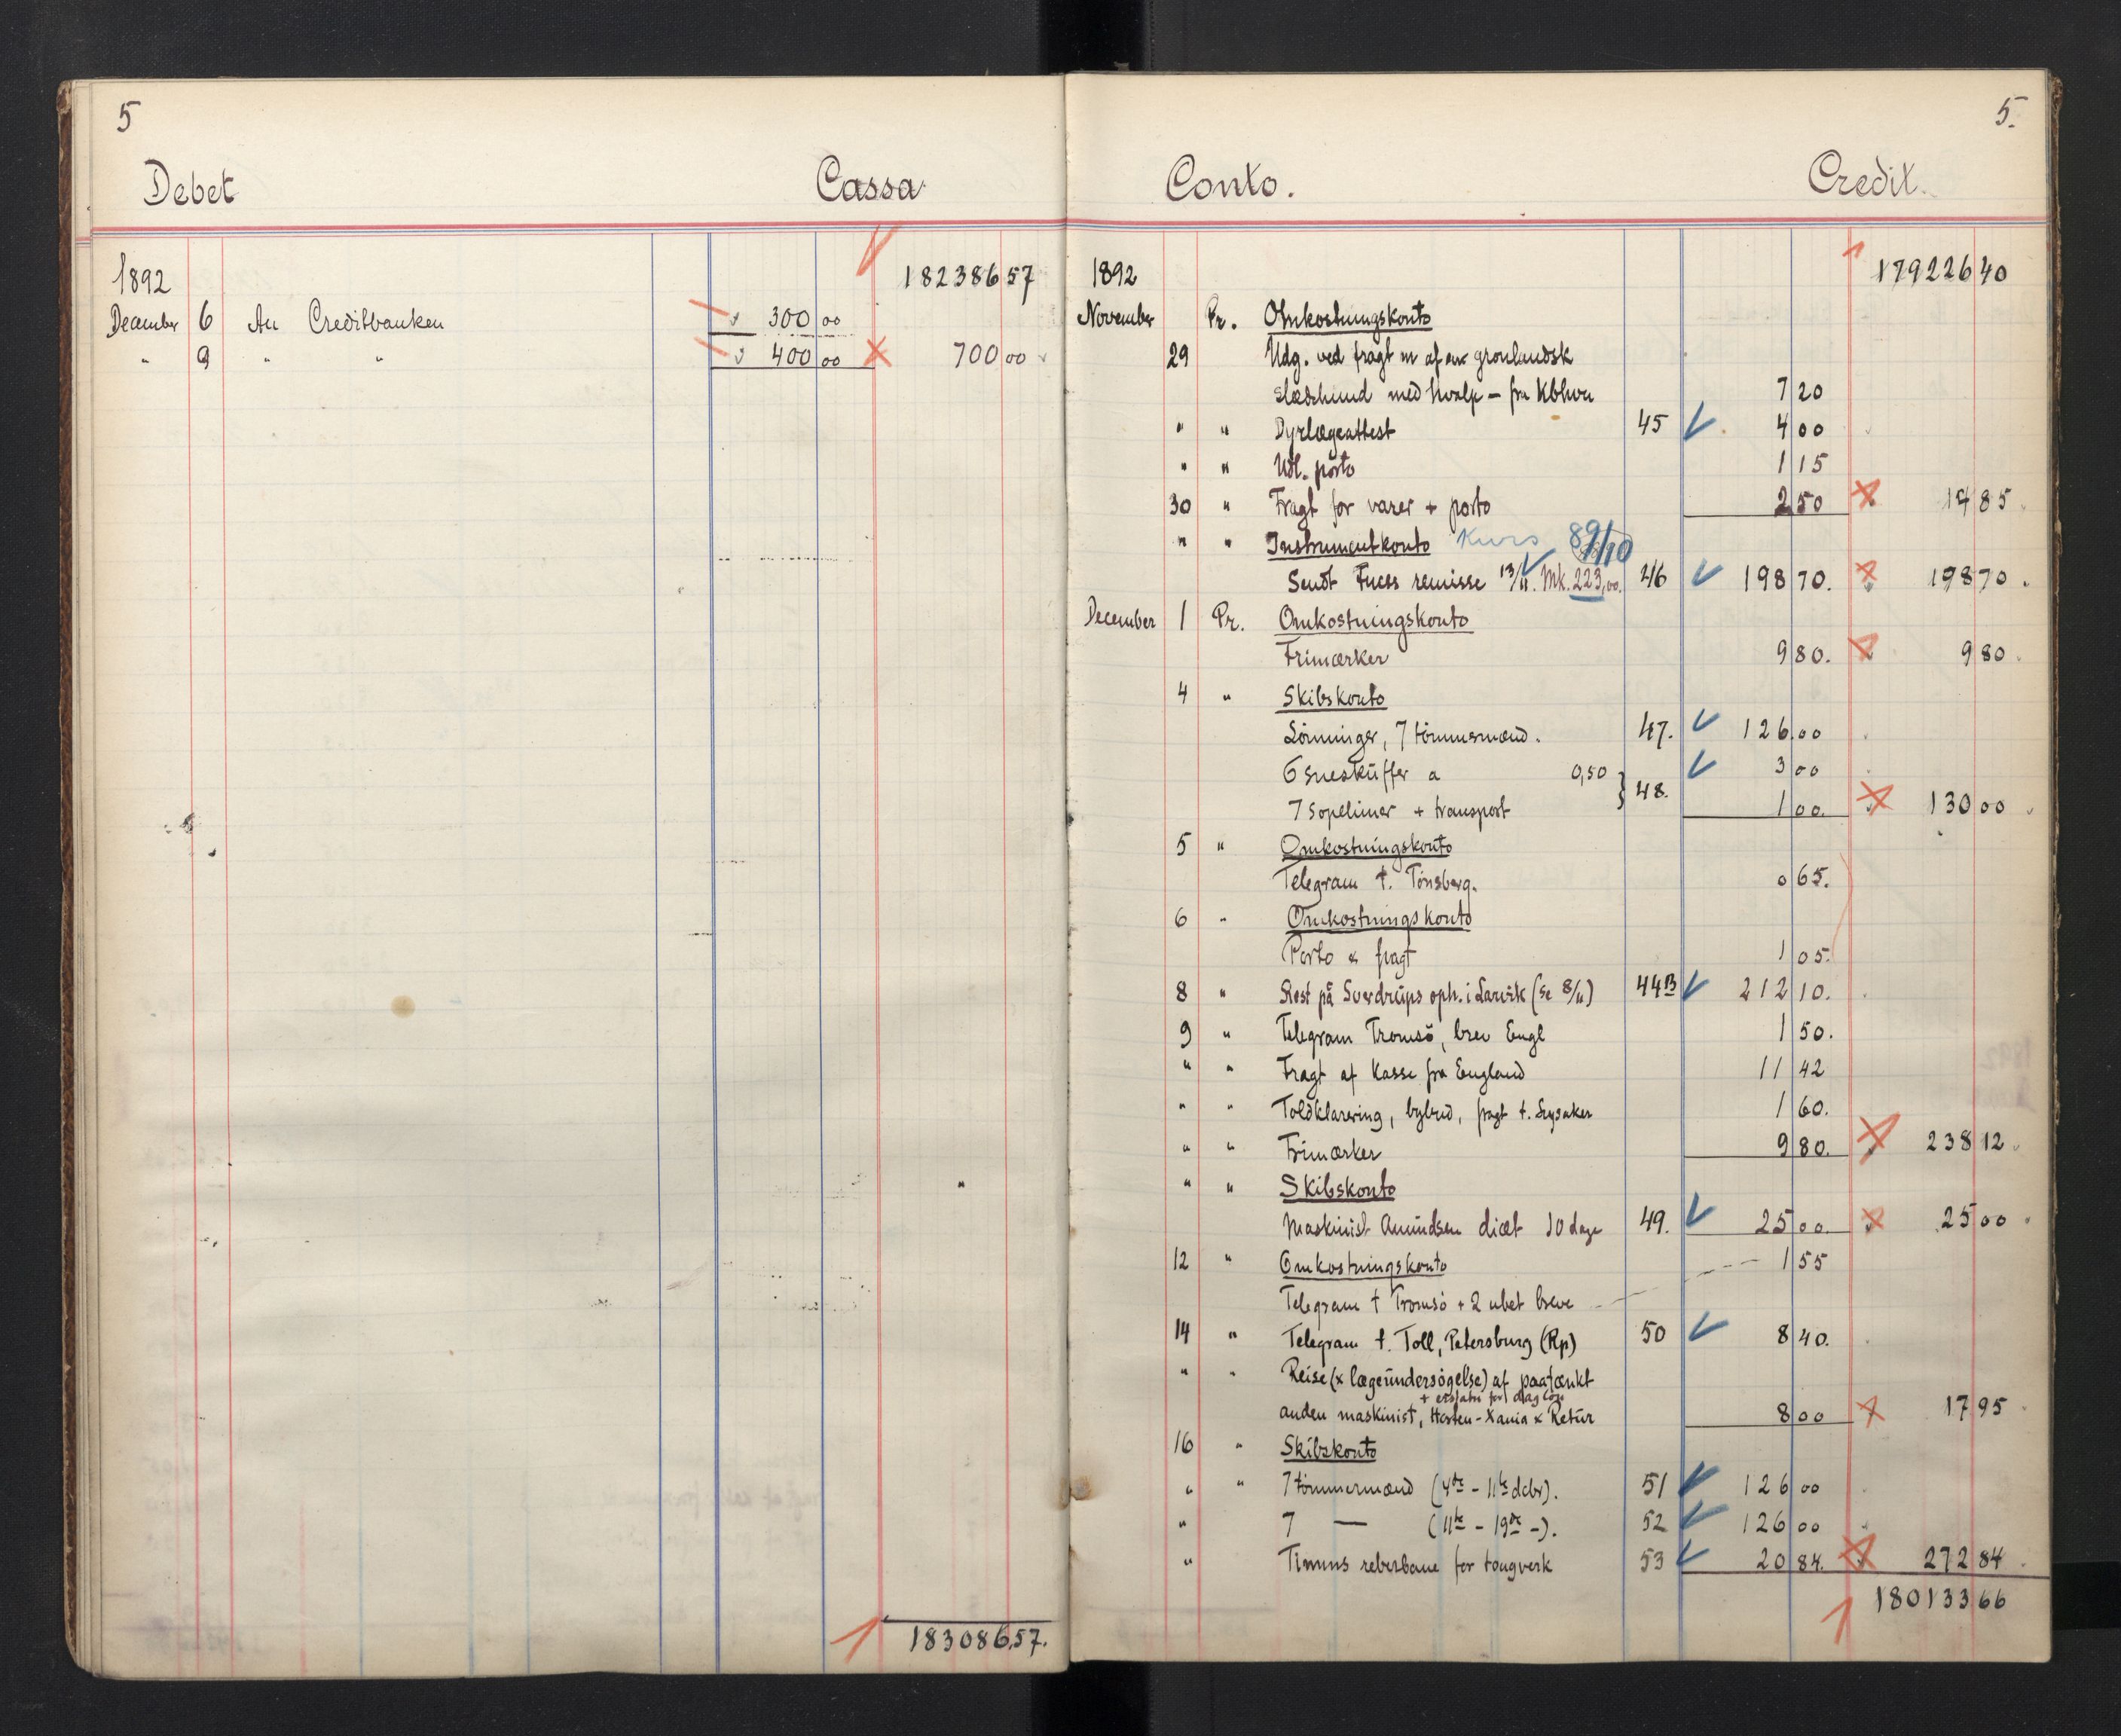 5
Debet Cassa
182386 57
1892
December 6 An Creditbanken 300 00
" 9 " " 400 00 700 00
183086,57.
5.
Conto. Credit.
179226 40
1892
November Pr. Omkostningskonto
29 Udg. ved fragt m af en grønlandsk
slædehund med hvalp – fra Kbhvn 7 20
" " Dyrlægeattest 45 4 00
" " Udl. porto 1 15
30 " Fragt for varer + porto 2 50 14 85
" " Instrumentkonto Kurs 89/10
Sendt Fuess remisse 13/11. Mk. 223,00. 46 198 70. 198 70.
December 1 Pr. Omkostningskonto
Frimærker 9 80. 9 80
4 " Skibskonto
Lönninger, 7 tömmermænd. 47. 126.00
6 sneskuffer a 0,50 3 00
7 sopelimer + transport 48. 1 00. 130 00
5 " Omkostningskonto
Telegram t. Tönsberg. 0 65.
6 " Omkostningskonto
Porto & fragt 1 05.
8 " Rest på Sverdrups oph. i Larvik (se 8/11) 44B 212 10.
9 " Telegram Tromsö, brev Engl 1 50.
" " Fragt af kasse fra England 11 42
" " Toldklarering, bybud, fragt t. Lysaker 1 60.
" " Frimærker 9 80. 238 12
" " Skibskonto
Maskinist Amundsen diæt 10 dage 49. 25 00. 25 00
12 " Omkostningskonto 1 55
Telegram t Tromsö + 2 ubet breve
14 " Telegram t. Toll, Petersburg (Rp) 50 8 40.
" " Reise (x lægeundersögelse) af paatænkt
+ erstatn for dag lön
anden maskinist, Horten - Xania x Retur 8 00 17 95
16 " Skibskonto
" " 7 tömmermænd (4de - 11te dcbr). 51 126 00
" 7 — (11te - 19de -). 52 126 00
" Timms reberbane for tougverk 53 20 84. 272 84
180133 66